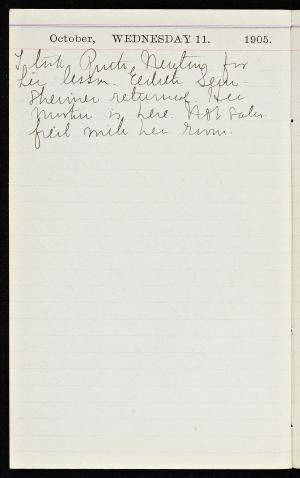 October, WEDNESDAY 11. 1905.
I took Ruth
her lesson. Edith
returned. Her
mother is here. Not satis-
fied with her room.